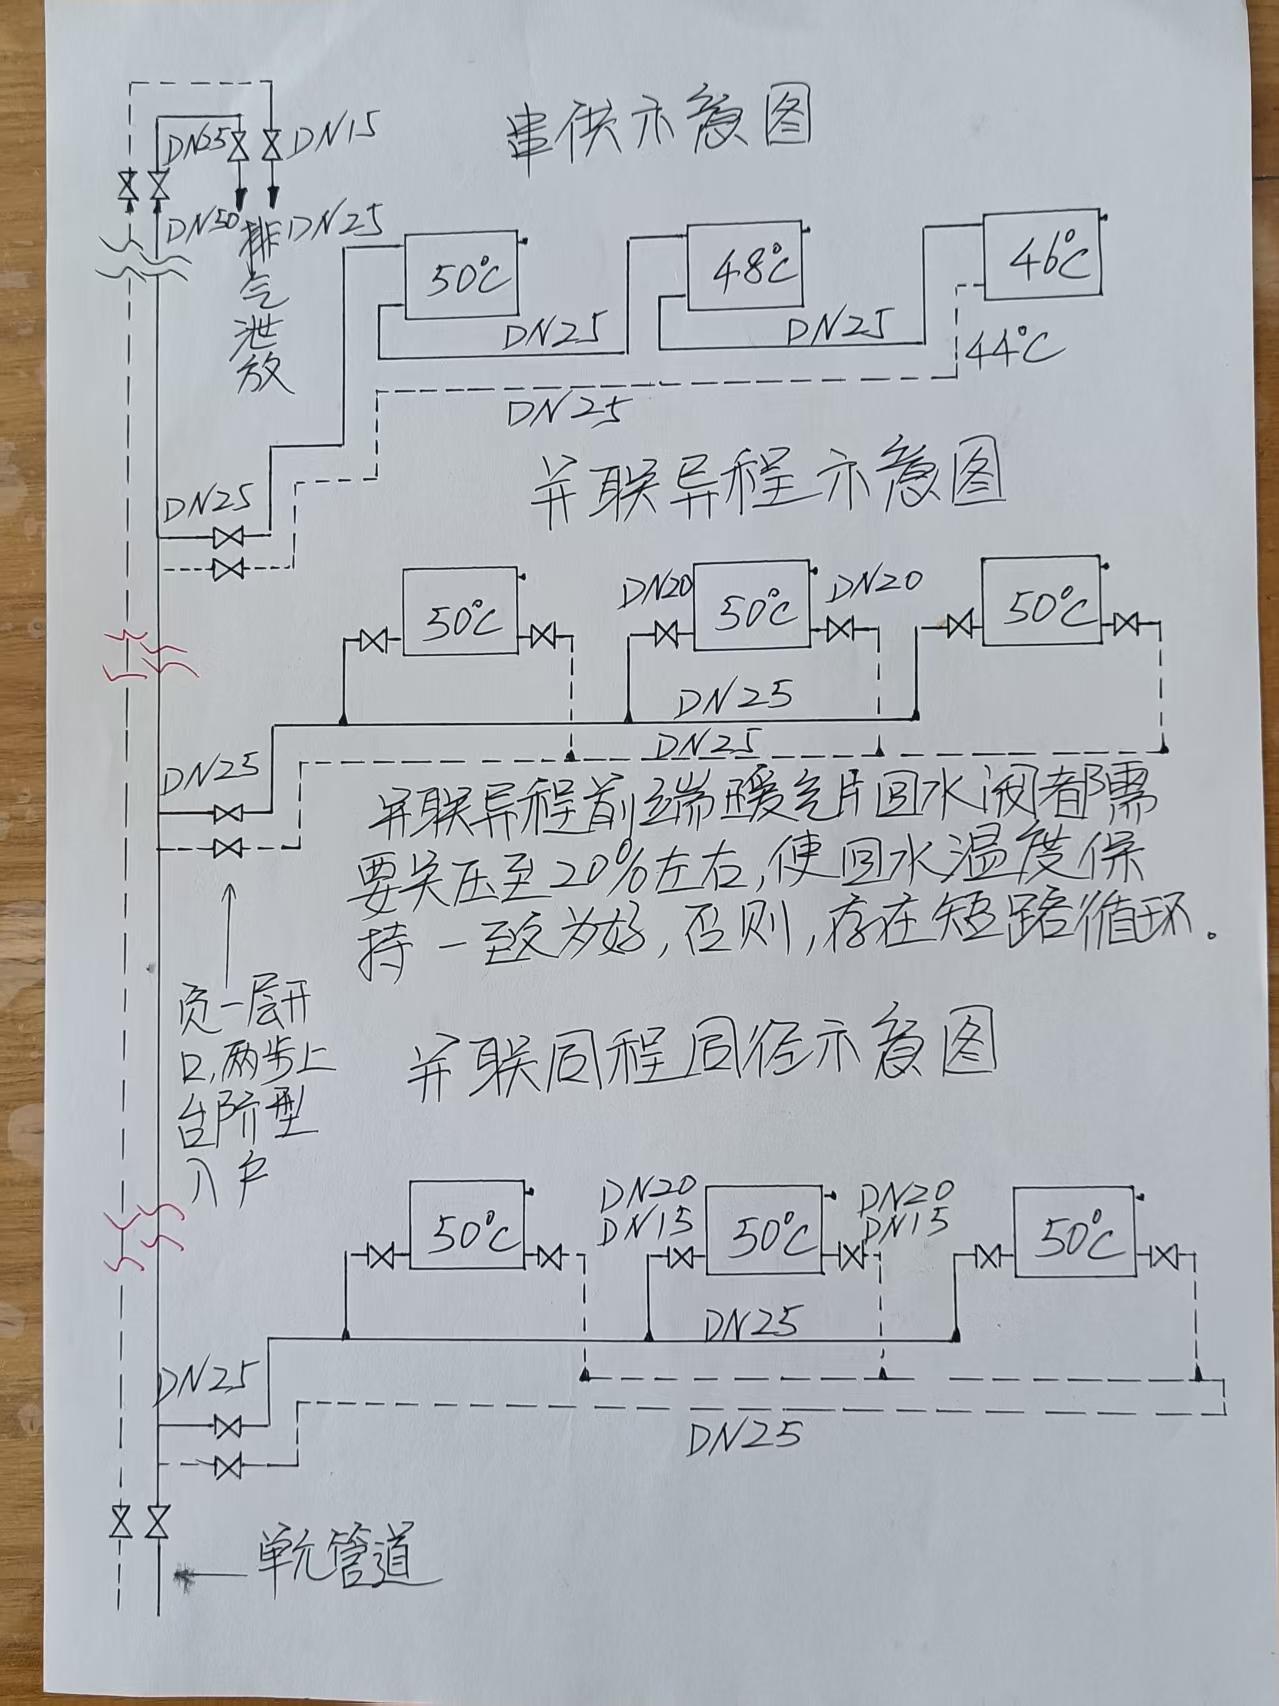 串供示意图
DN25
DN15
DN50
DN25
排气泄放
50℃
48℃
46℃
DN25
DN25
44℃
DN25
DN25
并联异程示意图
50℃
DN20
50℃
DN20
50℃
DN25
DN25
DN25
并联异程前端暖气片回水阀都需
要关压至20%左右,使回水温度保
持一致为好,否则,存在短路循环。
负一层开
口,两步上
台阶型
入户
并联同程同径示意图
50℃
DN20
DN15
50℃
DN20
DN15
50℃
DN25
DN25
DN25
单元管道